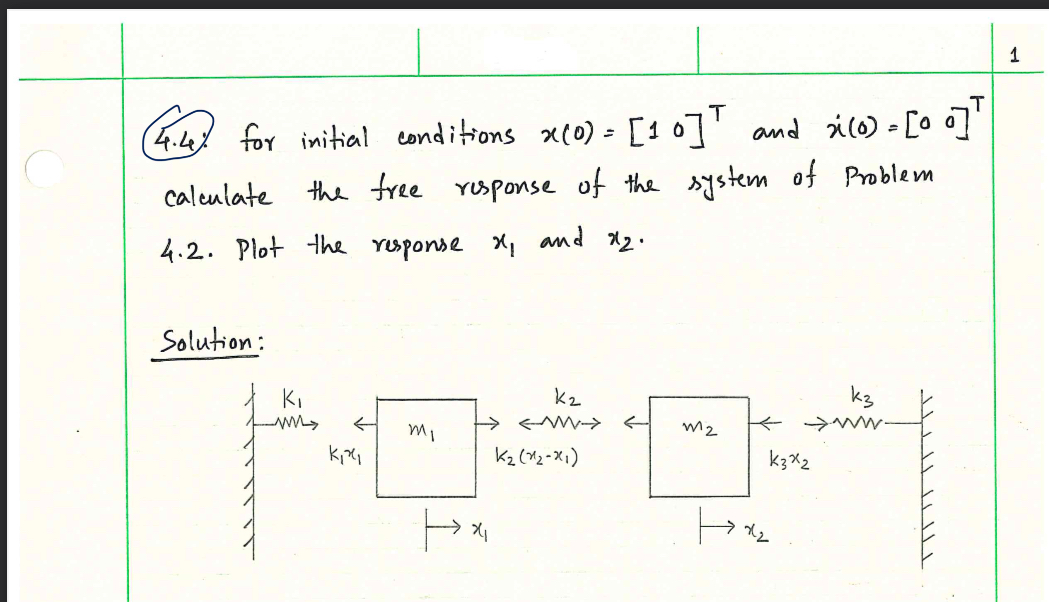 1
4.4: for initial conditions x(0) = [1 0]ᵀ and ẋ(0) = [0 0]ᵀ
calculate the free response of the system of Problem
4.2. Plot the response x₁ and x₂.
Solution:
K₁ k₂ k₃
m₁ m₂
k₁x₁ k₂(x₂-x₁) k₃x₂
x₁ x₂